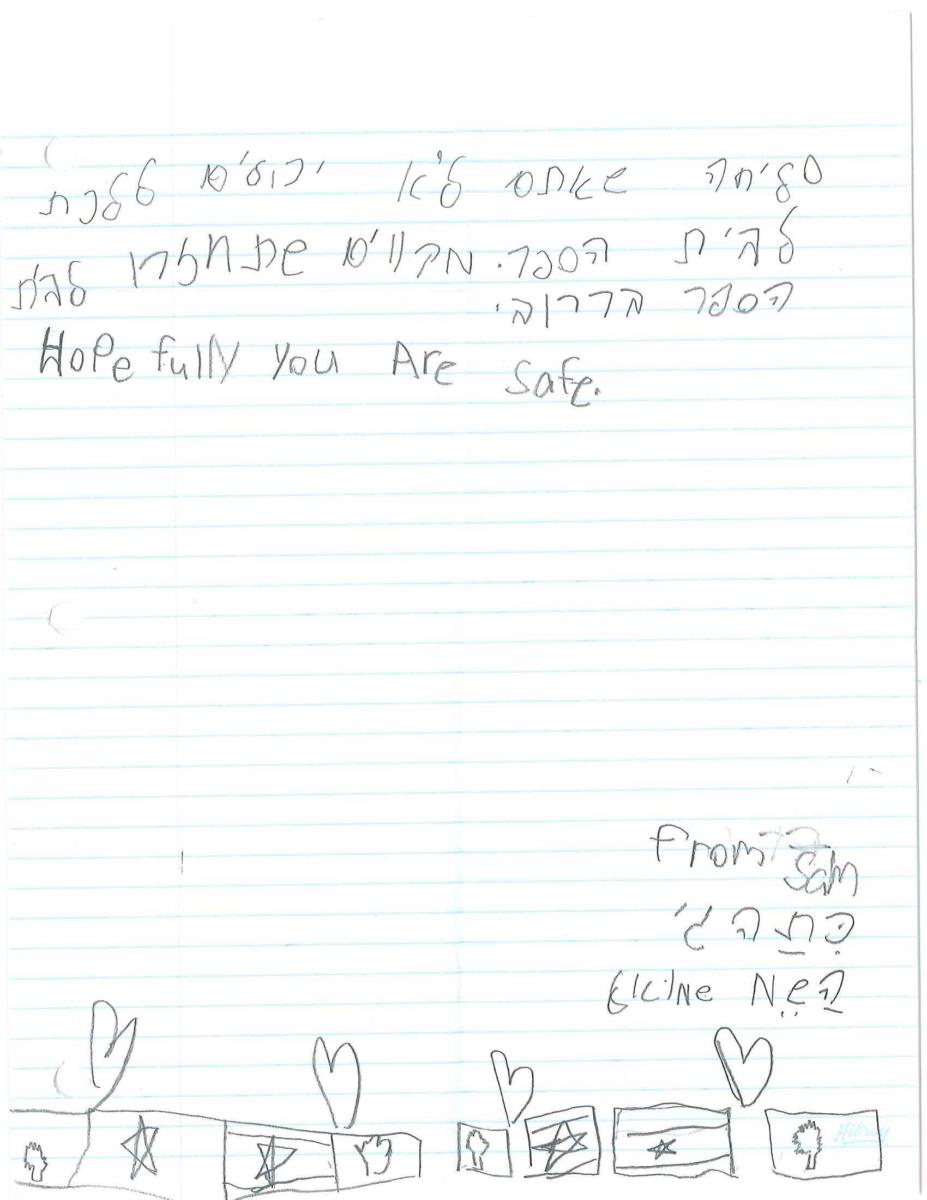 סליחה שאתם לֹא יכולים ללכת
לבית הספר. מקווים שתחזרו לבית
הספר
Hopefully you Are Safe.
From Sam
כִּתַה ג'
הַשֵמ שמואל
Hilroy